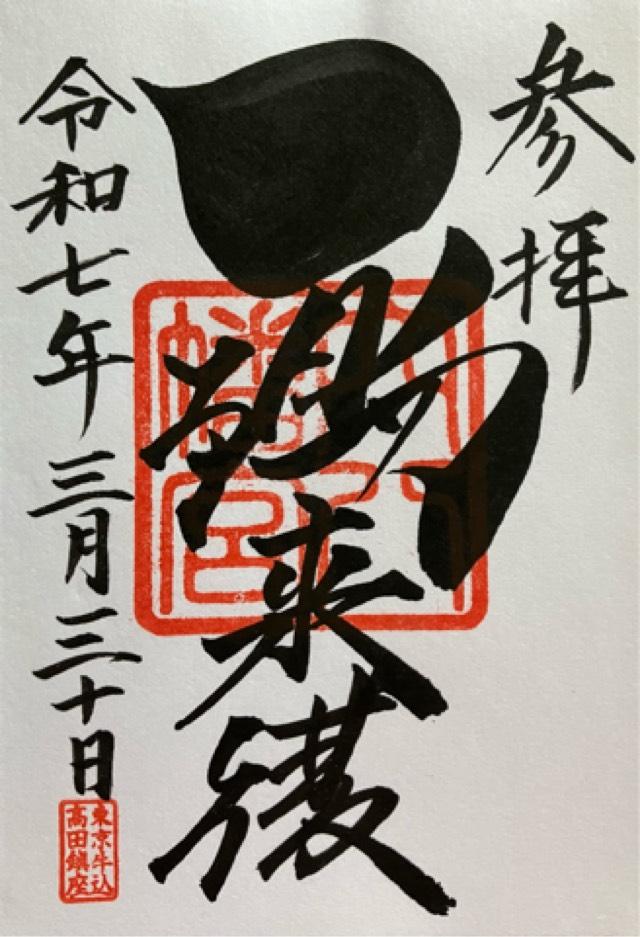 参拝
一陽来復
穴八
幡宮
令和七年三月三十日
東京牛込
高田鎮座